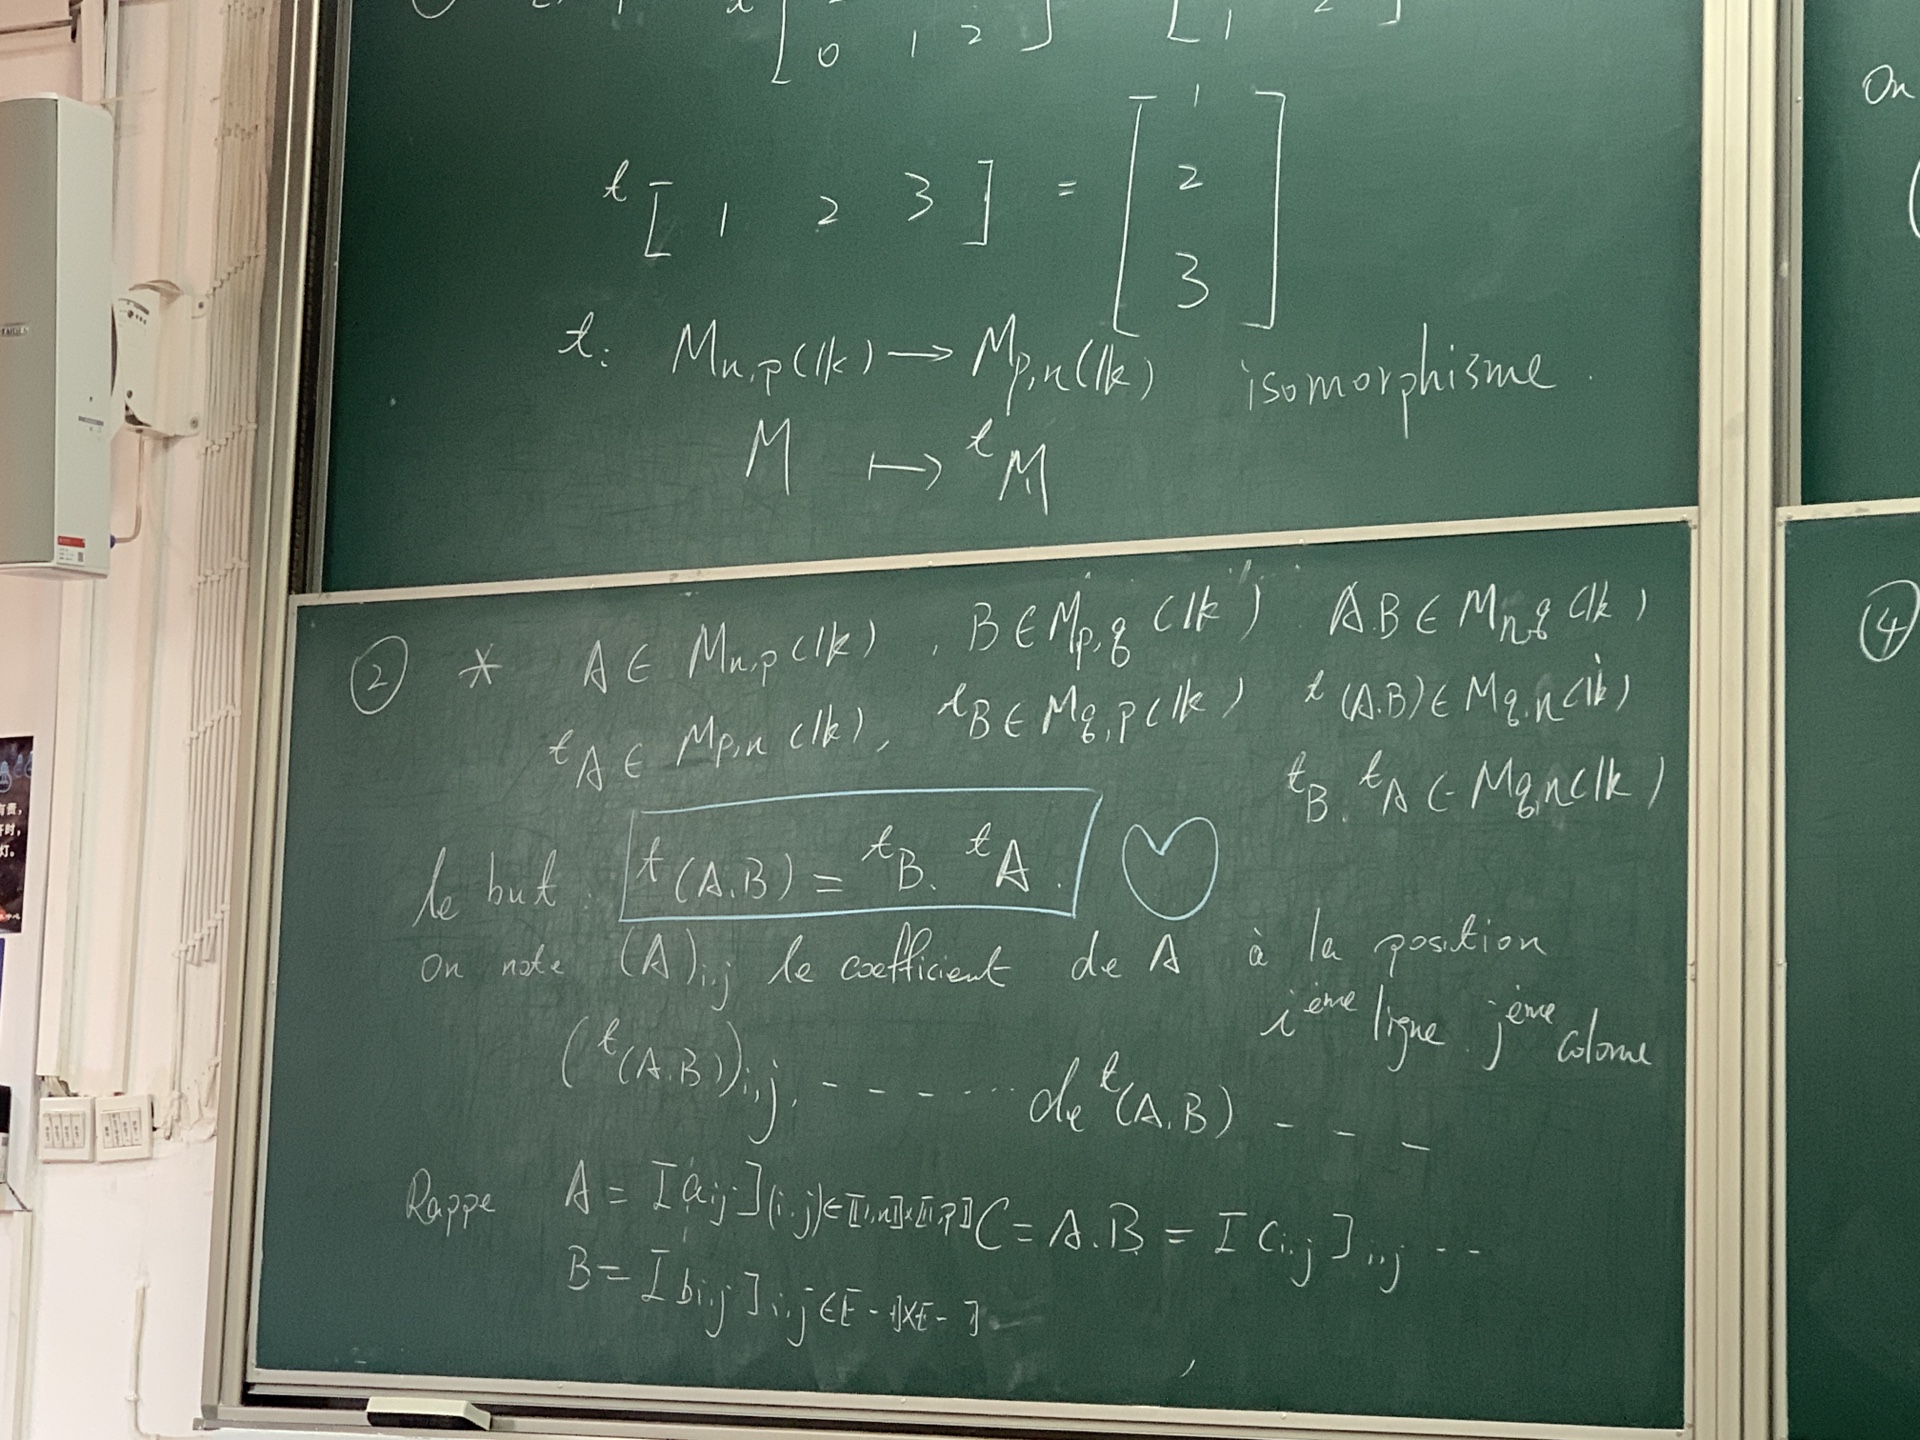 0 1 2
1 2
ᵗ[ 1 2 3 ] = [ 1
2
3 ]
t: Mn,p(lk) → Mp,n(lk) isomorphisme.
M ↦ ᵗM
② * A ∈ Mn,p(lk), B ∈ Mp,q(lk) A.B ∈ Mn,q(lk)
ᵗA ∈ Mp,n(lk), ᵗB ∈ Mq,p(lk) ᵗ(A.B) ∈ Mq,n(lk)
ᵗB. ᵗA ∈ Mq,n(lk)
le but : ᵗ(A.B) = ᵗB. ᵗA. ♡
on note (A)i,j le coefficient de A à la position
ième ligne. jème colonne
(ᵗ(A.B))i,j, - - - - - ... de ᵗ(A.B) - - -
Rappe A = [ai,j](i,j)∈⟦1,n⟧×⟦1,p⟧ C = A.B = [Ci,j]i,j --
B = [bi,j]i,j∈⟦-⟧×⟦-⟧
On
④